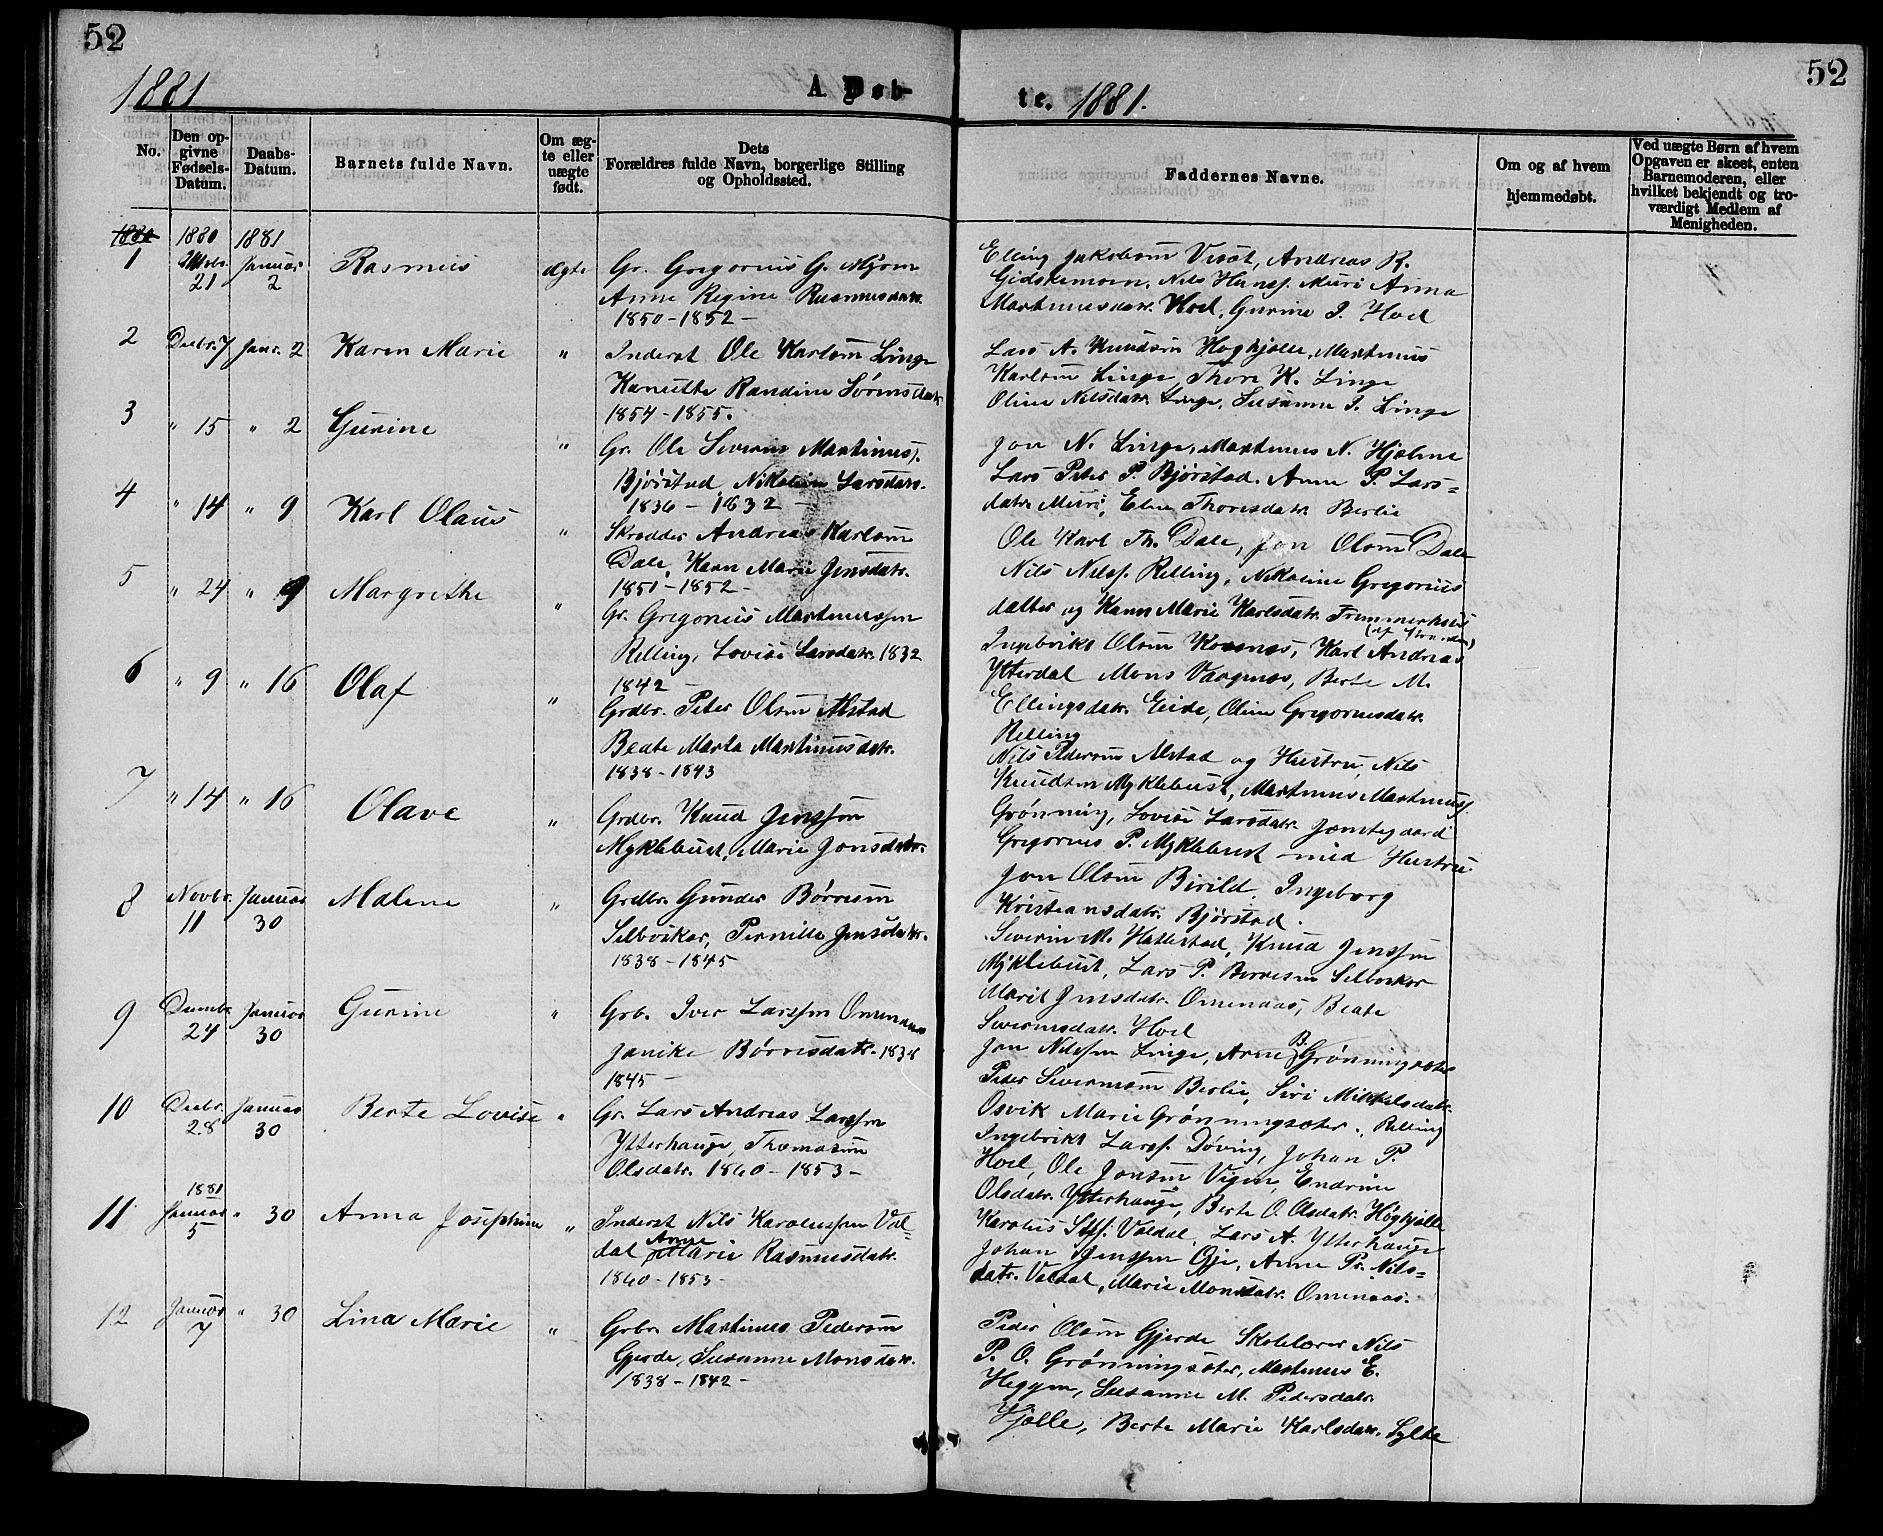 52
52
1881
A. Døb-
te. 1881.
No.
Den op-
givne
Fødsels-
Datum.
Daabs-
Datum.
Barnets fulde Navn.
Om æg-
te eller
uægte
født.
Dets
Forældres fulde Navn, borgerlige Stilling
og Opholdssted.
Faddernes Navne.
Om og af hvem
hjemmedøbt.
Ved uægte Børn af hvem
Opgaven er skeet, enten
Barnemoderen, eller
hvilket bekjendt og tro-
værdigt Medlem af
Menigheden.
1880 1880 1881
1 21 Januar 2 Rasmus ægte Gr. Gregorius G. Myren
Anne Regine Rasmusdatr.
1850-1852-
Elling Jakobsen Andreas R.
Nils Hansf. Muri Anna
Martinusdatr. Hoel, Gurine J. Hoel
2 Decbr. 7 Janr. 2 Karen Marie " Inderst Ole Karlsen Linge
Randine Sørensdatr
1854-1855.
Lars A. Knudsen Høghjølle, Martinus
Karlsen Linge, Thore K. Linge
Oline Nilsdatr. Linge, Susanne J. Linge
3 " 15 " 2 Gurine " Gr. Ole Severin Martinusf.
Bjørstad Nikoline Larsdatr.
1836-1832-
Jon N. Linge, Martinus N. Hjelme
Lars Peter P. Bjørstad. Anne P. Lars=
datr. Muri, Eline Thoresdatr. Berlie
4 " 14 " 9 Karl Olaus " Skrædder Andreas Karlsen
Dale, Karen Marie Jensdatr.
1851-1852-
Ole Karl Th. Dale, Jon Olsen Dale
Nils Nilsf. Relling, Nikoline Gregorius
datter og Karen Marie Karlsdatr.
5 " 24 " 9 Margrethe " Gr. Gregorius Martinussen
Relling, Lovise Larsdatr. 1832
1842-
Ingebrikt Olsen Korsnes, Karl Andreas
Ytterdal Mons Berte M.
Ellingsdatr. Eide, Oline Gregoriusdatr.
Relling
6 " 9 " 16 Olaf " Grdbr. Peter Olsen Alstad
Beate Marta Martinusdatr.
1838-1843
Nils Pedersen Alstad og Hustru, Nils
Knudsen Myklebust, Martinus Martinusf.
Grønning, Lovise Larsdatr. Jemtegaard
7 " 14 " 16 Olave " Grdbr. Knud Jenssen
Myklebust, Marie Jonsdatr.
Gregorius P. Myklebust med Hustru
Jon Olsen Birild, Ingeborg
Kristiansdatr. Bjørstad.
8 Novbr. 11 Januar 30 Malene " Grdbr. Gunder Børresen
Selboskar, Pernille Jensdatr.
1838-1845
Severin M. Hallestad, Knud Jenssen
Myklebust, Lars P. Børresen Selboskar
Marit Jensdatr. Omenaas, Beate
Severinsdatr. Hoel
9 24 Januar 30 Gurine " Grb. Iver Larssen Omenaas
Janike Børresdatr. 1838
1845-
Jon Nilssen Linge, Arne B. Grønningsæter
Peder Severinsen Berlie, Siri Mikkelsdatr.
Osvik Marie Grønningsæter, Relling
10 Decbr. 28 Januar 30 Berte Lovise " Gr. Lars Andreas Larssen
Ytterhauge, Thomasine
Olsdatr. 1860-1853-
Ingebrikt Larsf. Døving, Johan P.
Hoel, Ole Jonsen Vigen, Endrine
Olsdatr. Ytterhauge, Berte O. Olsdatr. Høghjølle
11 1881 Januar 5 " 30 Anna Josephine " Inderst Nils Karolussen Val=
dal Anne Marie Rasmusdatr.
1860-1853-
Karolus Valdal, Lars A. Ytterhauge
Johan Jenssen Øje, Anne Pr. Nils=
datr. Valdal, Marie Monsdatr. Omenaas.
12 Januar 7 " 30 Lina Marie " Grbr. Martinus Pedersen
Gjerde, Susanne Monsdatr.
1838-1842-
Peder Olsen Gjerde Skolelærer Nils
P. O. Grønningsæter, Martinus E.
Heggen, Susanne M. Pedersdatr.
Hjølle, Berte Marie Karlsdatr. Sylte